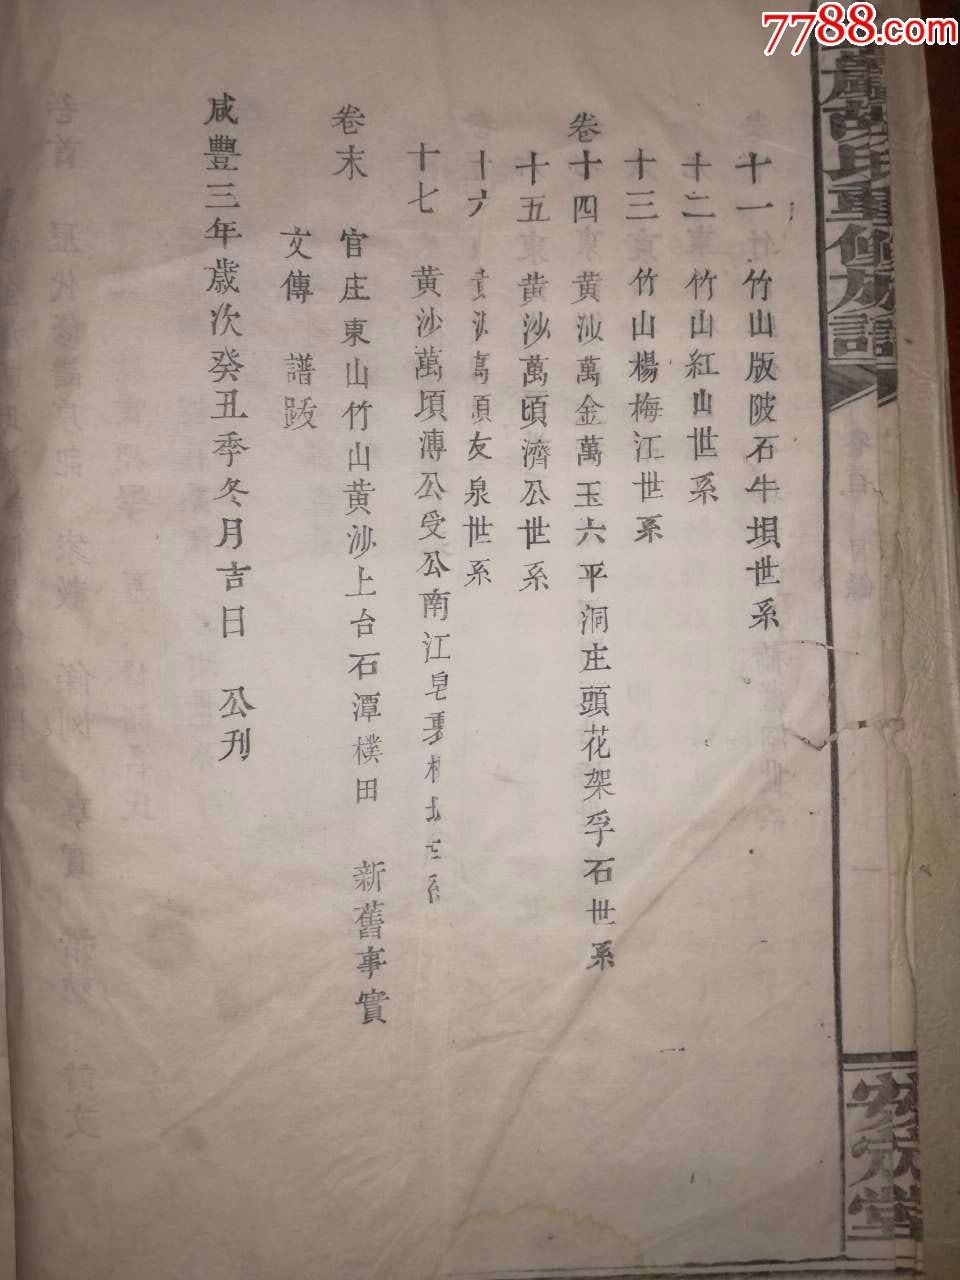 7788.com
氏重修族譜
安定堂
十一 竹山版陂石牛埧世系
十二 竹山紅山世系
十三 竹山楊梅江世系
卷十四 黄沙萬金萬玉六平洞庄頭花架孚石世系
十五 黄沙萬頃濟公世系
十六 黄沙萬頃友泉世系
十七 黄沙萬頃溥公受公南江皂
卷末 官庄東山竹山黄沙上台石潭樸田 新舊事實
文傳 譜跋
咸豐三年歲次癸丑季冬月吉日 公刋